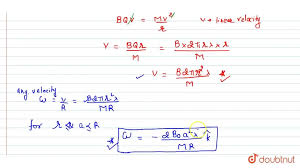 BQV = MV²/r    V → linear velocity
V = BQr/M = B×2πr×r/M
V = B2πr²λ/M
ang velocity
ω = V/R = B2πr²λ/MR
for r ≤ a ≤ R
ω = - 2B₀a²λ/MR k̂
doubtnut